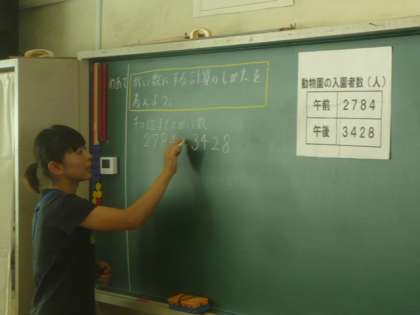 めあて
がい数にする計算のしかたを
考えよう。
千の位までのがい数
2784+3428
動物園の入園者数(人)
午前 2784
午後 3428